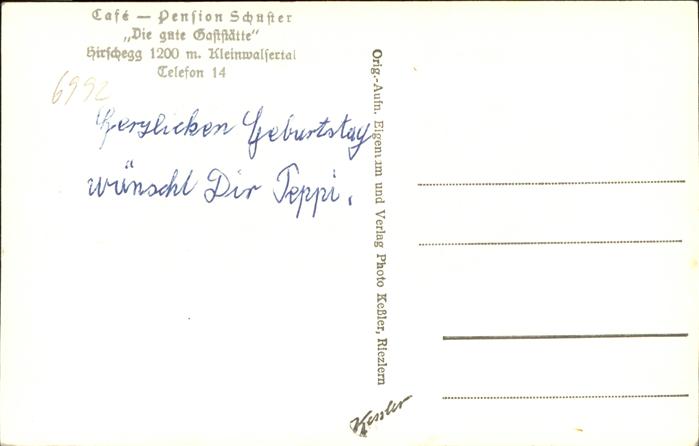 Café — Pension Schuster
„Die gute Gaststätte"
Hirschegg 1200 m. Kleinwalsertal
Telefon 14
6992
Herzlichen Geburtstag
wünscht Dir Peppi.
Orig.-Aufn. Eigentum und Verlag Photo Keßler, Riezlern
Kessler